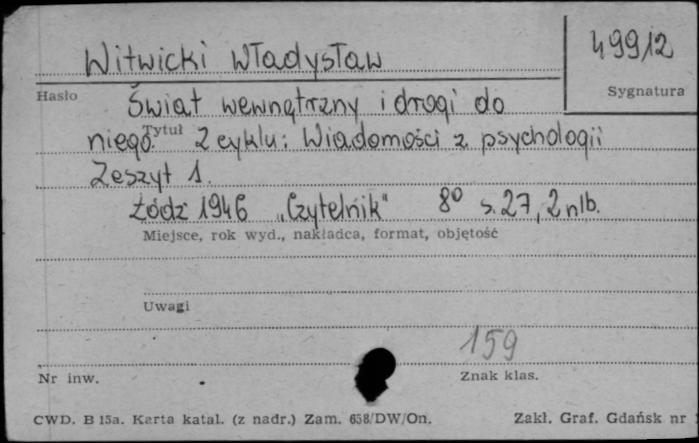 Witwicki Władysław
49912
Hasło
Sygnatura
Świat wewnętrzny i drogi do
niego. Z cyklu: Wiadomości z psychologii
Tytuł
Zeszyt 1.
Łódź 1946 „Czytelnik" 8⁰ s. 27, 2 nlb.
Miejsce, rok wyd., nakładca, format, objętość
Uwagi
159
Nr inw.
Znak klas.
CWD. B 15a. Karta katal. (z nadr.) Zam. 658/DW/On.
Zakł. Graf. Gdańsk nr